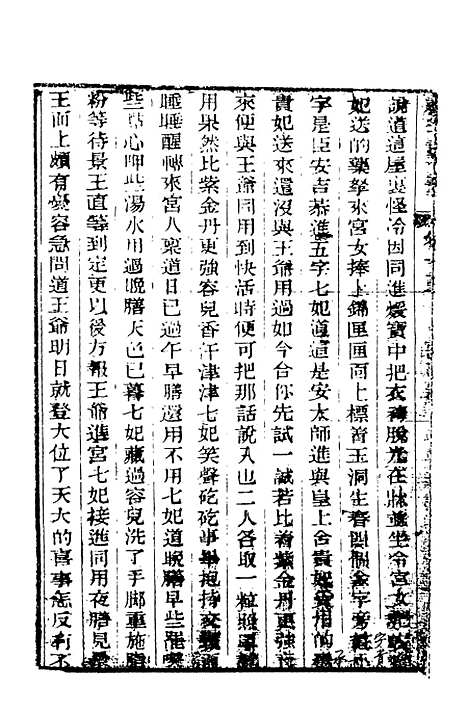 說道這屋裏怪冷因同進煖寶中把衣褲脫光在牀並坐令宮女
妃送的藥拏來宮女捧上錦匣匣面上標着玉洞生春四個金字旁
字是臣安吉恭進五字七妃道這是安太師進與皇上舍貴妃用的
貴妃送來還沒與王爺用過如今合你先試一試若比着紫金丹更強
來便與王爺同用到快活時便可把那話說入也二人各取一粒
用果然比紫金丹更強容兒香汗津津七妃笑聲矻矻事畢抱持
睡睡醒轉來宮人稟道日已過午早膳還用不用七妃道晚膳早些
些點心呷些湯水用過晚膳天色已暮七妃藏過容兒洗了手腳重施脂
粉等待景王直等到定更以後方報王爺進宮七妃接進同用夜膳見
王面上頗有憂容急問道王爺明日就登大位了天大的喜事怎反有不